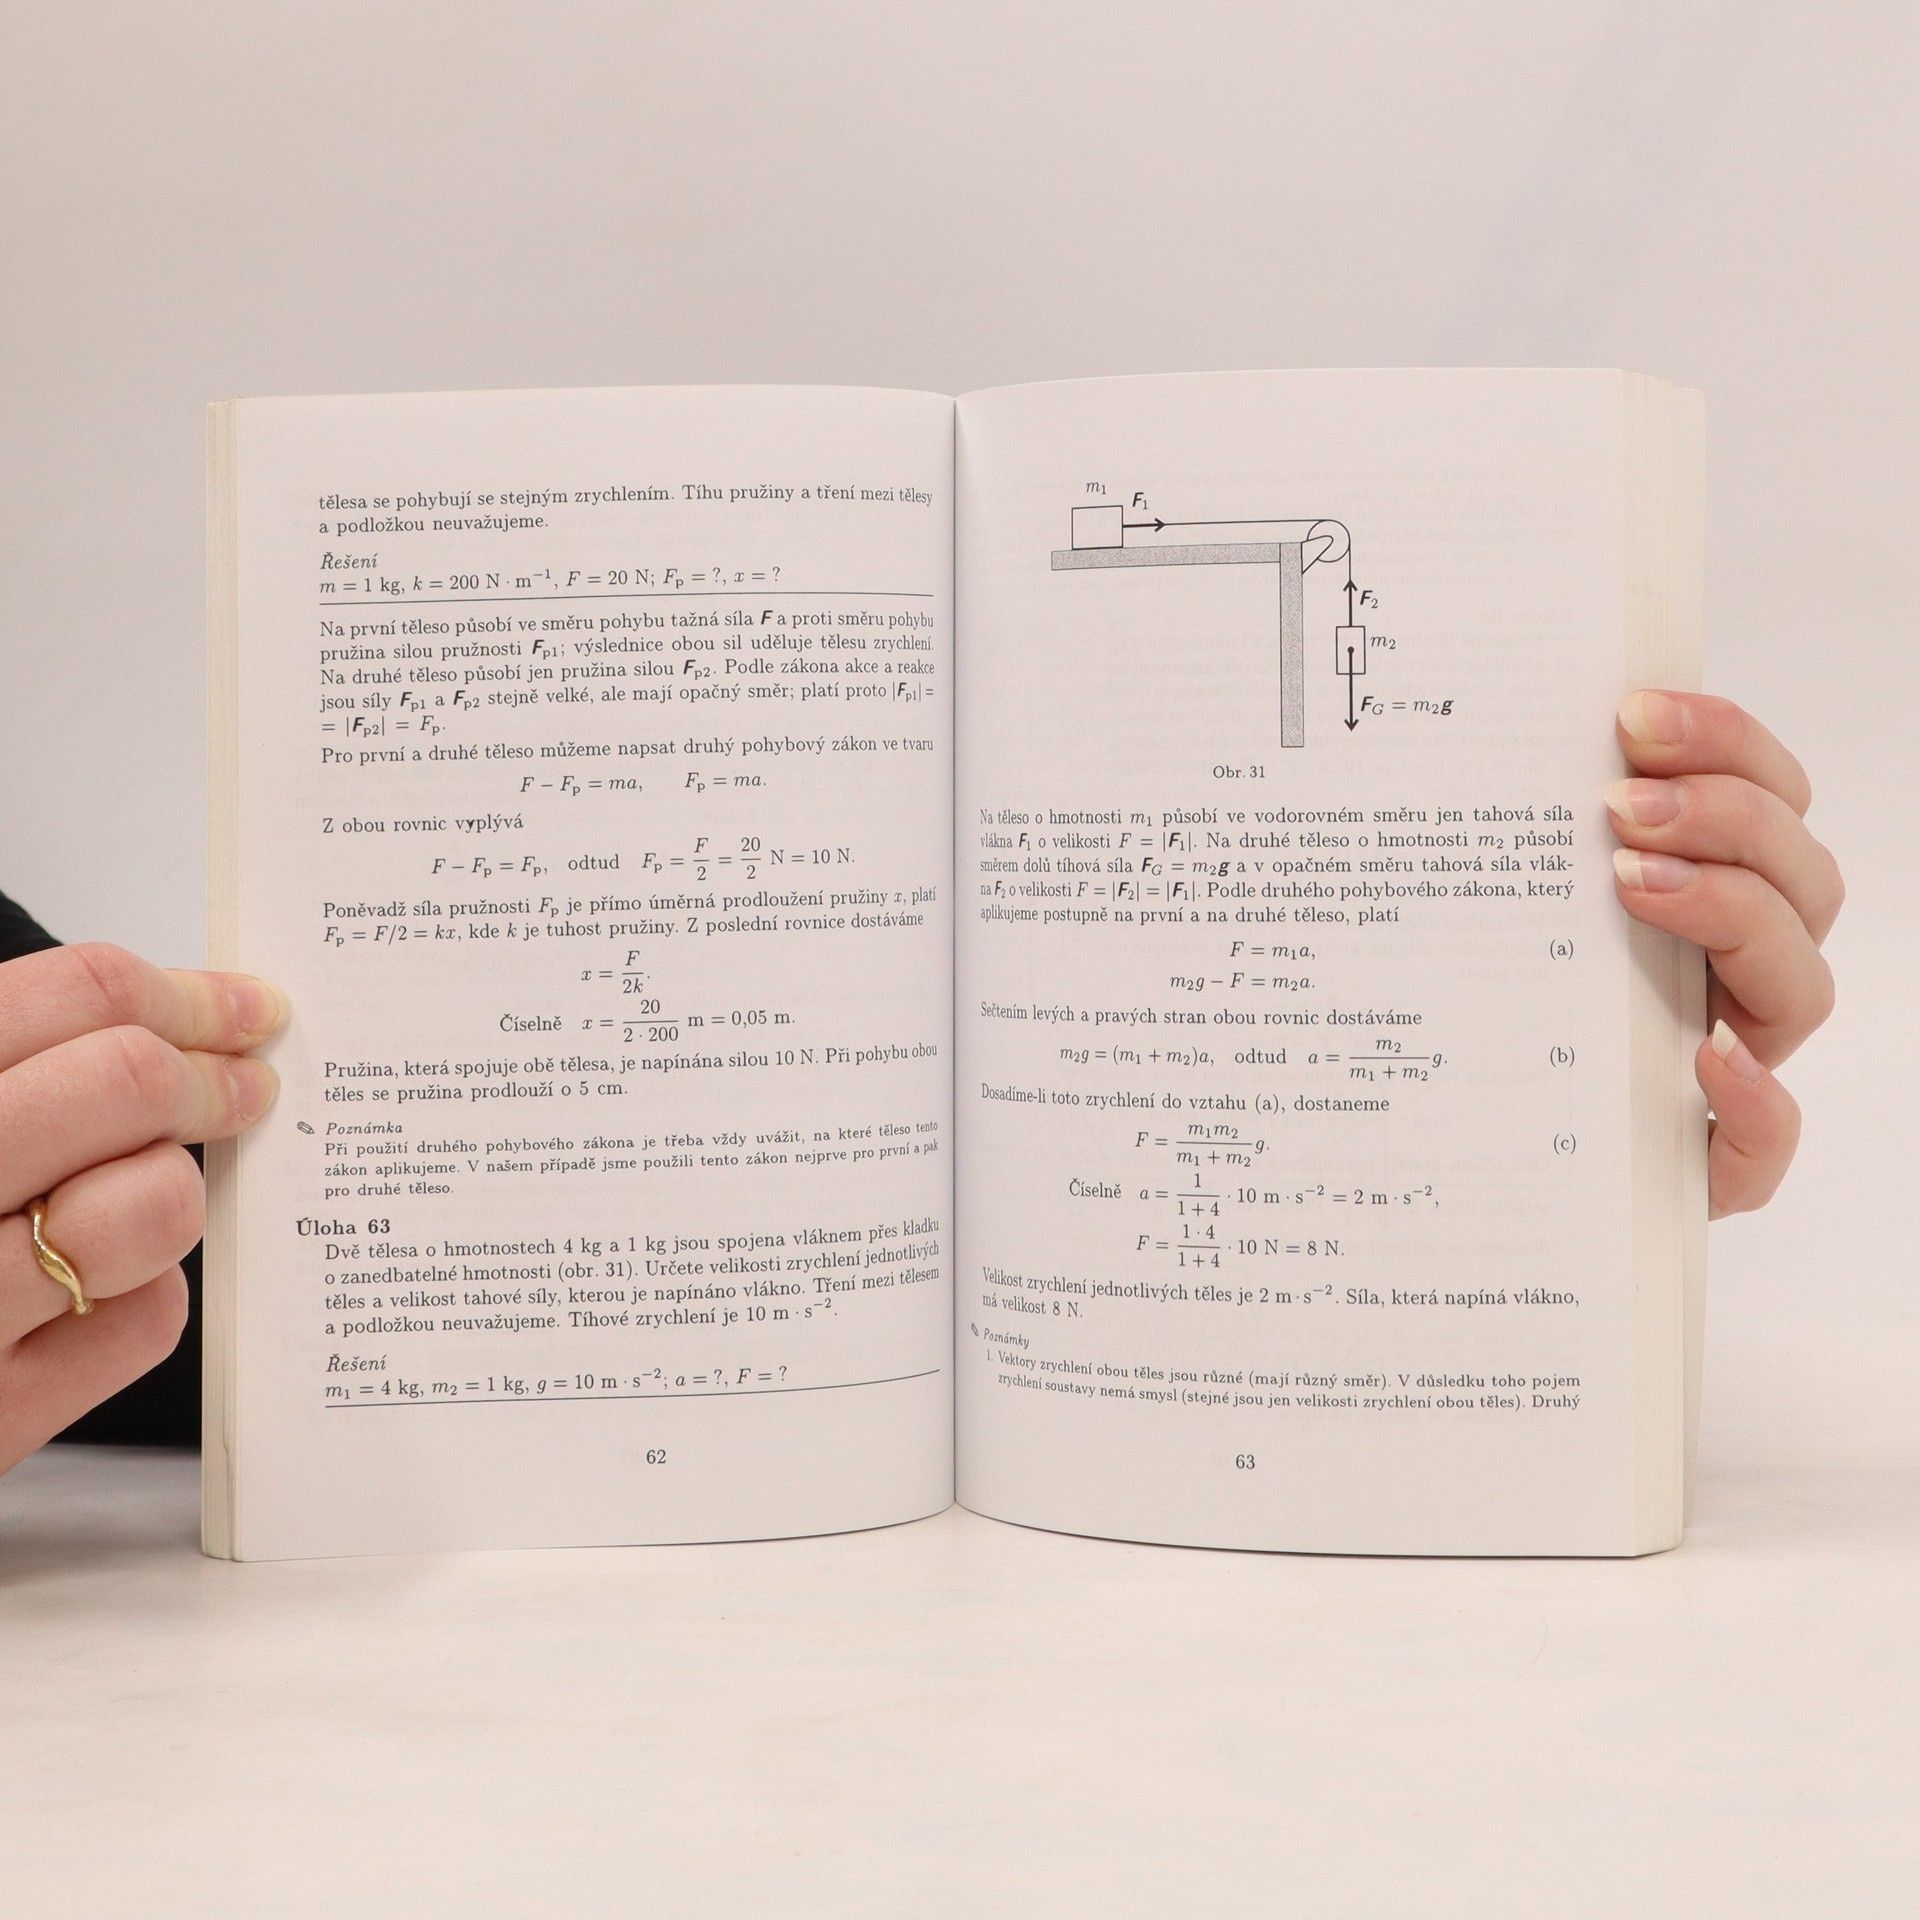 tělesa se pohybují se stejným zrychlením. Tíhu pružiny a tření mezi tělesy
a podložkou neuvažujeme.
Řešení
m = 1 kg, k = 200 N · m⁻¹, F = 20 N; Fₚ = ?, x = ?
Na první těleso působí ve směru pohybu tažná síla F a proti směru pohybu
pružina silou pružnosti Fp1; výslednice obou sil uděluje tělesu zrychlení.
Na druhé těleso působí jen pružina silou Fp2. Podle zákona akce a reakce
jsou síly Fp1 a Fp2 stejně velké, ale mají opačný směr; platí proto |Fp1| =
= |Fp2| = Fp.
Pro první a druhé těleso můžeme napsat druhý pohybový zákon ve tvaru
F − Fp = ma, Fp = ma.
Z obou rovnic vyplývá
F − Fp = Fp, odtud Fp = F/2 = 20/2 N = 10 N.
Poněvadž síla pružnosti Fp je přímo úměrná prodloužení pružiny x, platí
Fp = F/2 = kx, kde k je tuhost pružiny. Z poslední rovnice dostáváme
x = F/2k.
Číselně x = 20/2 · 200 m = 0,05 m.
Pružina, která spojuje obě tělesa, je napínána silou 10 N. Při pohybu obou
těles se pružina prodlouží o 5 cm.
✎ Poznámka
Při použití druhého pohybového zákona je třeba vždy uvážit, na které těleso tento
zákon aplikujeme. V našem případě jsme použili tento zákon nejprve pro první a pak
pro druhé těleso.
Úloha 63
Dvě tělesa o hmotnostech 4 kg a 1 kg jsou spojena vláknem přes kladku
o zanedbatelné hmotnosti (obr. 31). Určete velikosti zrychlení jednotlivých
těles a velikost tahové síly, kterou je napínáno vlákno. Tření mezi tělesem
a podložkou neuvažujeme. Tíhové zrychlení je 10 m · s⁻².
Řešení
m₁ = 4 kg, m₂ = 1 kg, g = 10 m · s⁻²; a = ?, F = ?
62
m₁
F₁
F₂
m₂
F_G = m₂g
Obr. 31
Na těleso o hmotnosti m₁ působí ve vodorovném směru jen tahová síla
vlákna F₁ o velikosti F = |F₁|. Na druhé těleso o hmotnosti m₂ působí
směrem dolů tíhová síla F_G = m₂g a v opačném směru tahová síla vlák-
na F₂ o velikosti F = |F₂| = |F₁|. Podle druhého pohybového zákona, který
aplikujeme postupně na první a na druhé těleso, platí
F = m₁a, (a)
m₂g − F = m₂a.
Sečtením levých a pravých stran obou rovnic dostáváme
m₂g = (m₁ + m₂)a, odtud a = m₂/m₁ + m₂ g. (b)
Dosadíme-li toto zrychlení do vztahu (a), dostaneme
F = m₁m₂/m₁ + m₂ g. (c)
Číselně a = 1/1 + 4 · 10 m · s⁻² = 2 m · s⁻²,
F = 1 · 4/1 + 4 · 10 N = 8 N.
Velikost zrychlení jednotlivých těles je 2 m · s⁻². Síla, která napíná vlákno,
má velikost 8 N.
✎ Poznámky
1. Vektory zrychlení obou těles jsou různé (mají různý směr). V důsledku toho pojem
zrychlení soustavy nemá smysl (stejné jsou jen velikosti zrychlení obou těles). Druhý
63